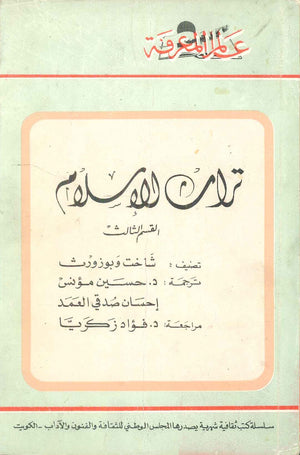 عالم المعرفة
تراث الإسلام
القسم الثالث
تصنيف : شاخت وبوزورث
ترجمة : د. حسين مؤنس
إحسان صدقي العمد
مراجعة : د. فؤاد زكريا
سلسلة كتب ثقافية شهرية يصدرها المجلس الوطني للثقافة والفنون والآداب - الكويت